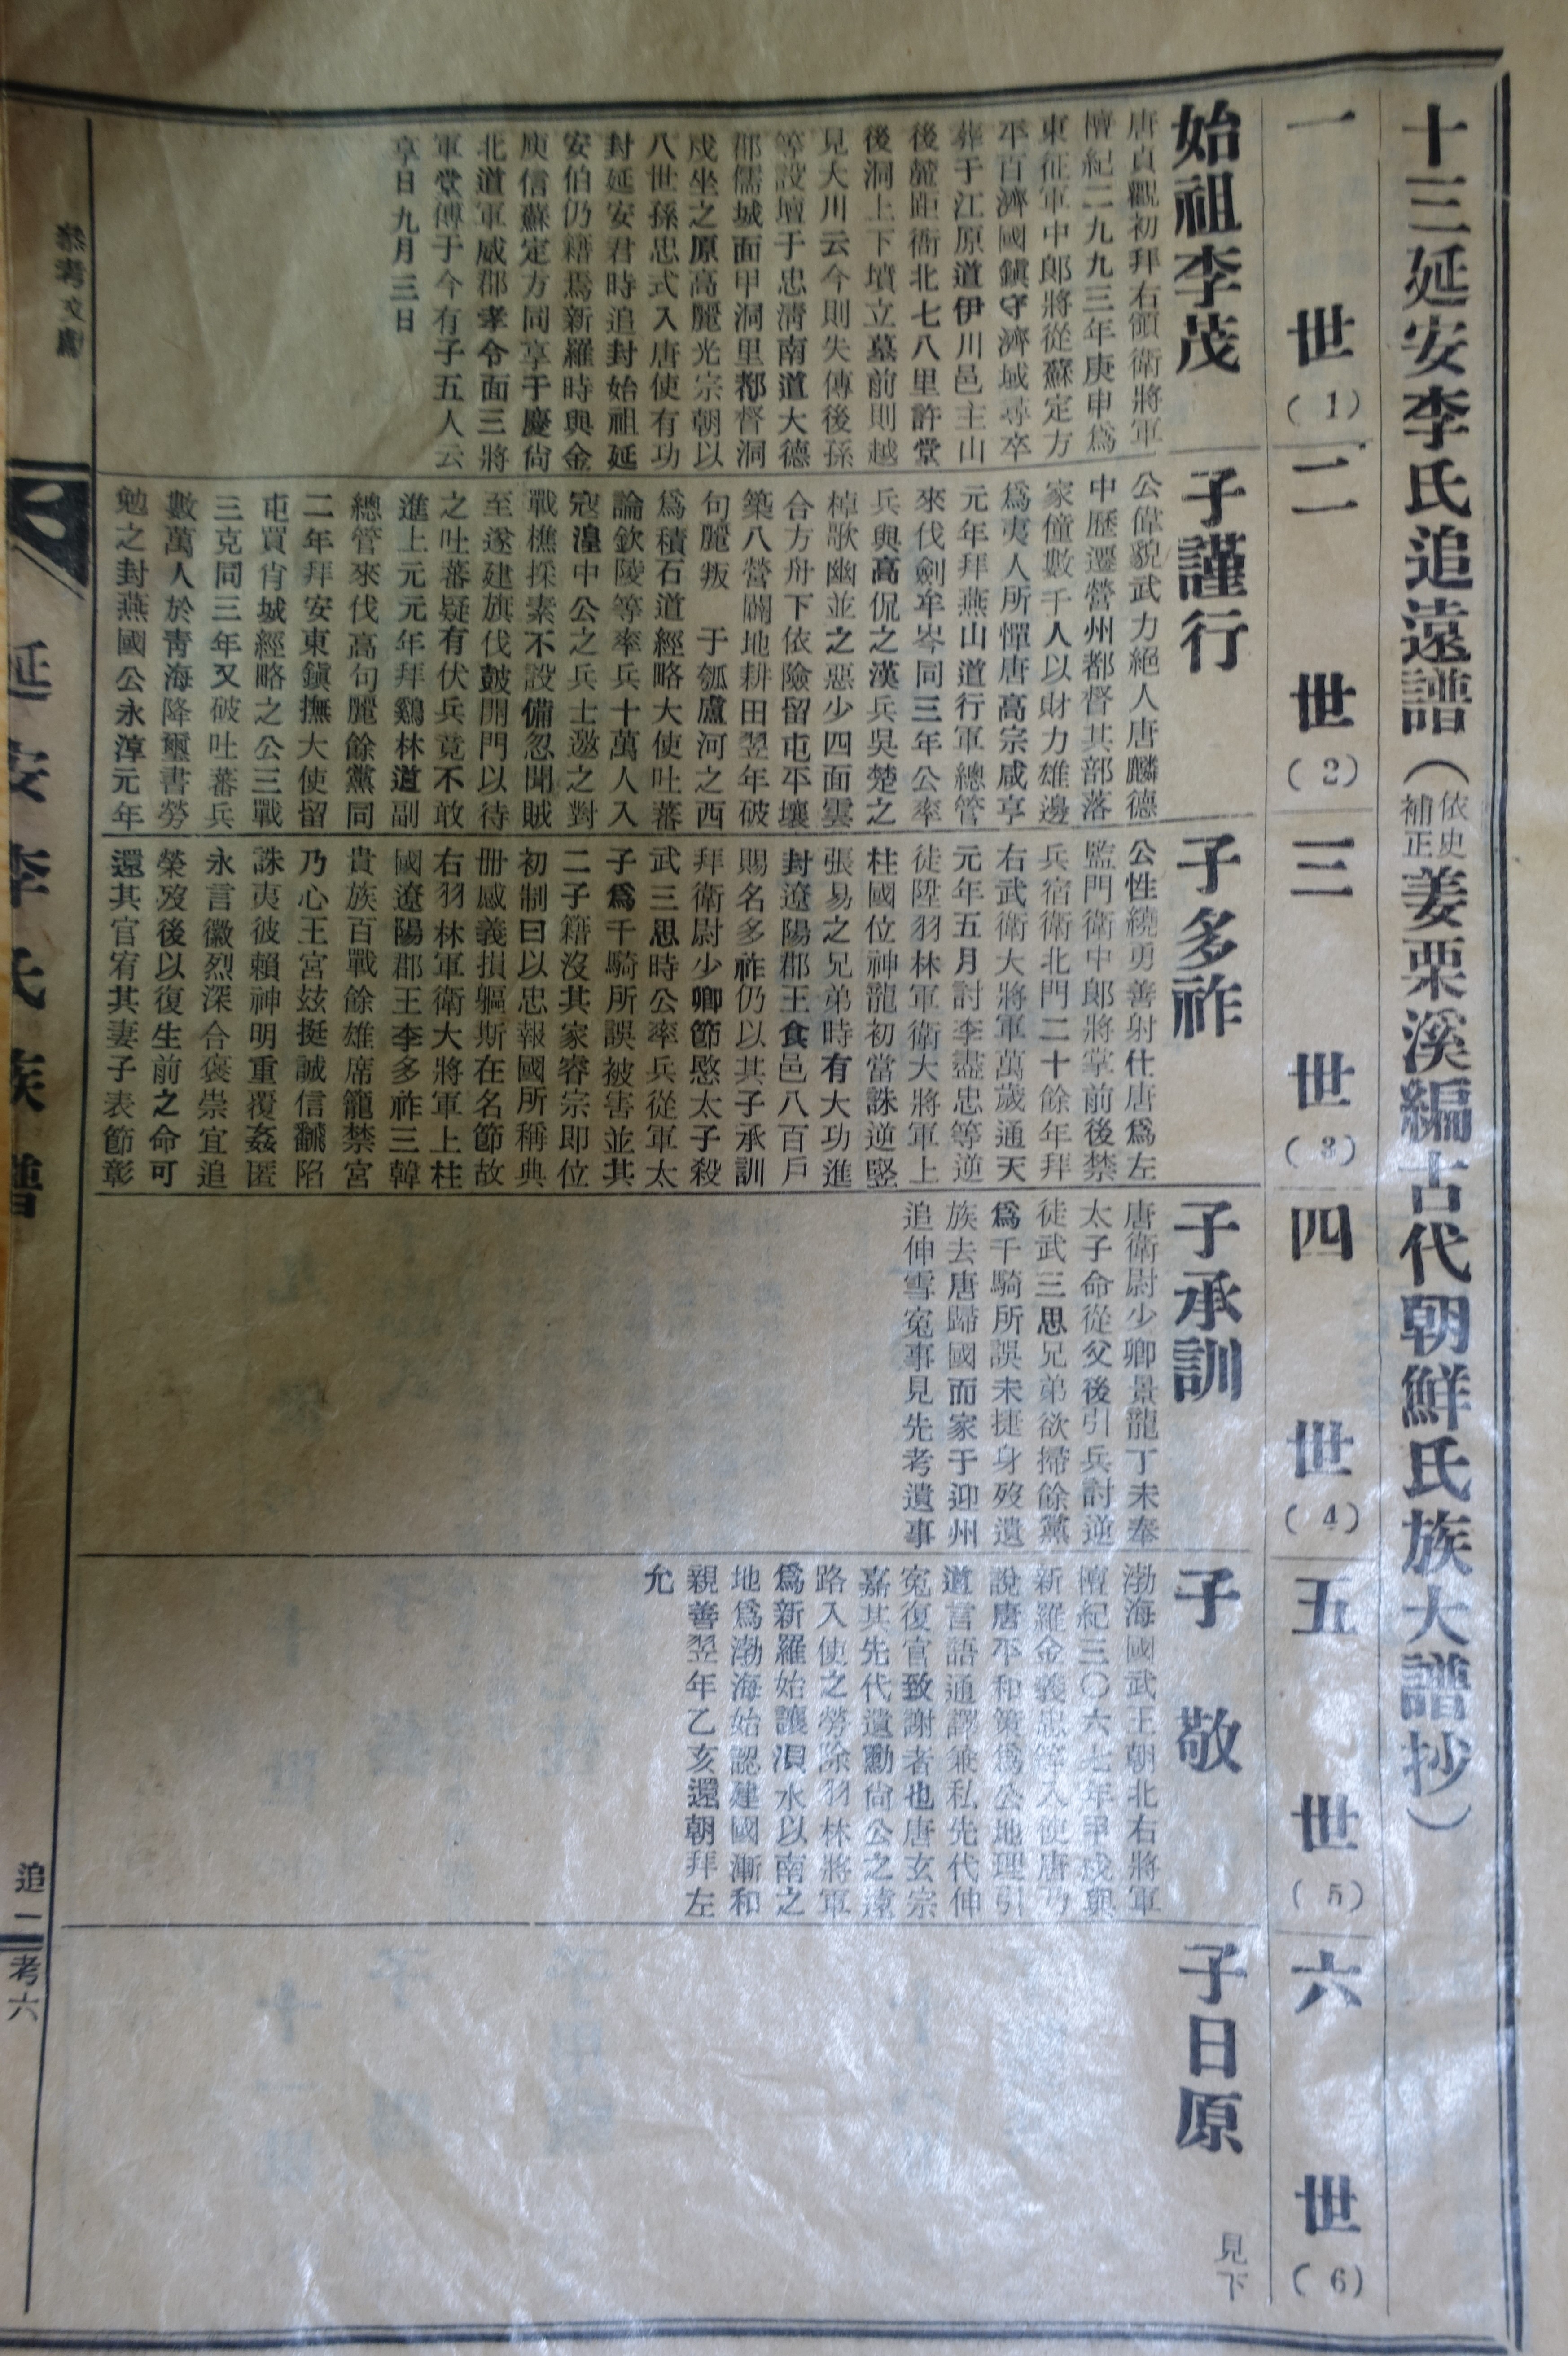 十三延安李氏追遠譜（依史補正姜栗溪編古代朝鮮氏族大譜抄）
一世(1)
二世(2)
三世(3)
四世(4)
五世(5)
六世(6)
始祖李茂
唐貞觀初拜右領衛將軍
檀紀二九九三年庚申爲
東征軍中郎將從蘇定方
平百濟國鎭守濟域尋卒
葬于江原道伊川邑主山
後麓距衙北七八里許堂
後洞上下墳立墓前則越
見大川云今則失傳後孫
等設壇于忠淸南道大德
郡儒城面甲洞里都督洞
戌坐之原高麗光宗朝以
八世孫忠式入唐使有功
封延安君時追封始祖延
安伯仍籍焉新羅時與金
庾信蘇定方同享于慶尙
北道軍威郡孝令面三將
軍堂傳于今有子五人云
享日九月三日
子謹行
公偉貌武力絕人唐麟德
中歷遷營州都督其部落
家僮數千人以財力雄邊
爲夷人所憚唐高宗咸亨
元年拜燕山道行軍總管
來伐劍牟岑同三年公率
兵與高侃之漢兵吳楚之
棹歌幽並之惡少四面雲
合方舟下依險留屯平壤
築八營闢地耕田翌年破
句麗叛　于瓠盧河之西
爲積石道經略大使吐蕃
論欽陵等率兵十萬人入
寇湟中公之兵士邀之對
戰樵採素不設備忽聞賊
至遂建旗伐皷開門以待
之吐蕃疑有伏兵竟不敢
進上元元年拜鷄林道副
總管來伐高句麗餘黨同
二年拜安東鎭撫大使留
屯買肖城經略之公三戰
三克同三年又破吐蕃兵
數萬人於靑海降璽書勞
勉之封燕國公永淳元年
子多祚
公性繞勇善射仕唐爲左
監門衛中郞將掌前後禁
兵宿衛北門二十餘年拜
右武衛大將軍萬歲通天
元年五月討李盡忠等逆
徒陞羽林軍衛大將軍上
柱國位神龍初當誅逆竪
張易之兄弟時有大功進
封遼陽郡王食邑八百戶
賜名多祚仍以其子承訓
拜衛尉少卿節愍太子殺
武三思時公率兵從軍太
子爲千騎所誤被害並其
二子籍沒其家睿宗即位
初制曰以忠報國所稱典
册感義損軀斯在名節故
右羽林軍衛大將軍上柱
國遼陽郡王李多祚三韓
貴族百戰餘雄席寵禁宮
乃心王宮玆挺誠信飜陷
誅夷彼賴神明重覆姦匿
永言徽烈深合褒崇宜追
榮歿後以復生前之命可
還其官宥其妻子表節彰
子承訓
唐衛尉少卿景龍丁未奉
太子命從父後引兵討逆
徒武三思兄弟欲掃餘黨
爲千騎所誤未捷身歿遺
族去唐歸國而家于迎州
追伸雪寃事見先考遺事
子敬
渤海國武王朝北右將軍
檀紀三〇六七年甲戌與
新羅金義忠等入使唐乃
說唐平和策爲公地理引
道言語通譯兼私先代伸
寃復官致謝者也唐玄宗
嘉其先代遺勳尙公之遠
路入使之勞除羽林將軍
爲新羅始讓浿水以南之
地爲渤海始認建國漸和
親善翌年乙亥還朝拜左
允
子日原
見下
參考文獻
延安李氏族譜
追二
考六